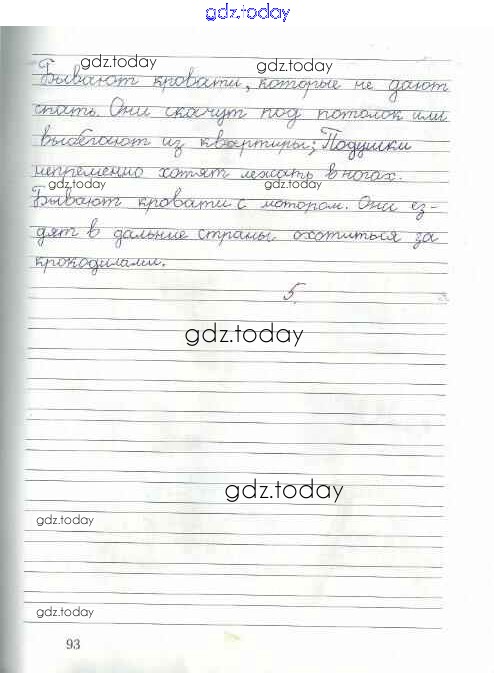 gdz.today
gdz.today gdz.today
Бывают кровати, которые не дают
спать. Они скачут под потолок или
выбегают из квартиры; Подушки
непременно хотят лежать в ногах.
gdz.today gdz.today
Бывают кровати с мотором. Они ез-
дят в дальние страны охотиться за
крокодилами.
5.
gdz.today
gdz.today
gdz.today
gdz.today
93